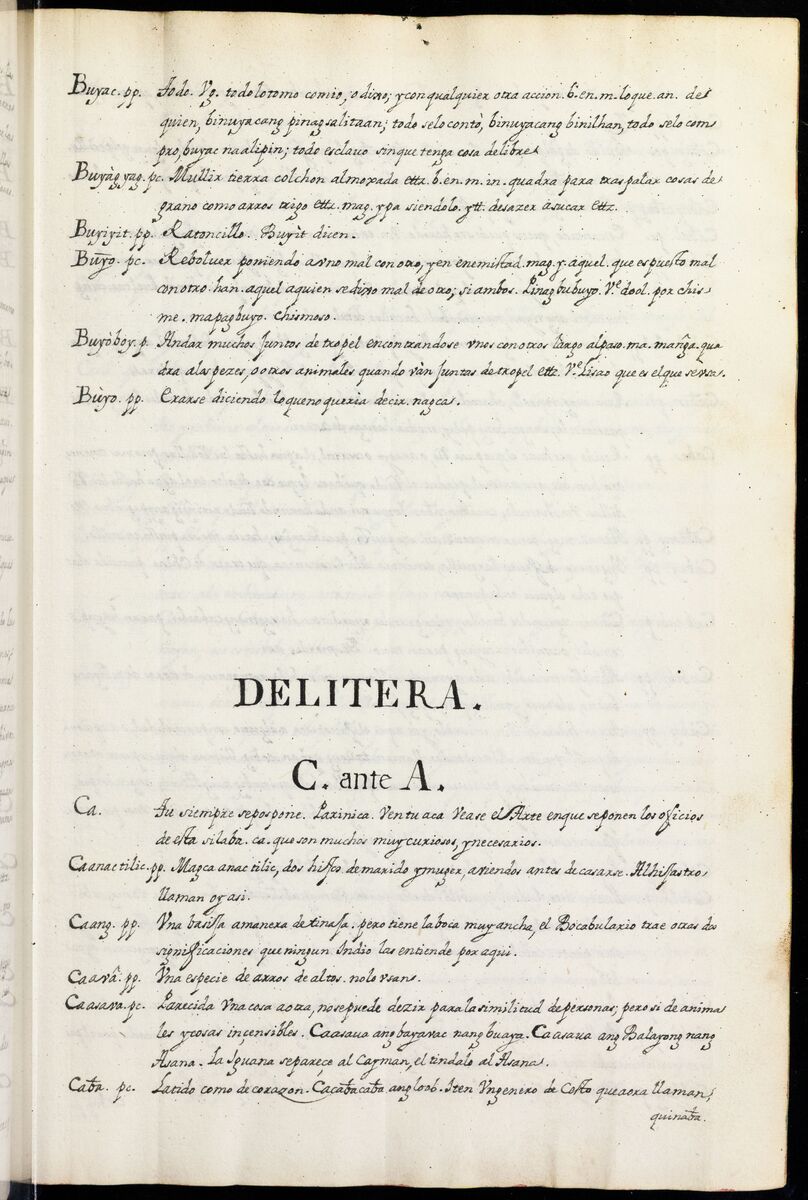 Buyac. pp. Todo. Vg. todo lo tomo comio, o dixo; y con qualquier otra accion. b. en. m. lo que. an. de
quien, binuyacang pinagsalitaan; todo selo contò, binuyacang binilhan, todo selo com
pro, buyac na alipin; todo esclavo sin que tenga cosa de libre.
Buyàgyag. pc. Mullir tierra colchon almoxada ettz. b. en. m. in. quadra para traspalar cosas de
grano como arros trigo ettz. mag. y pa siendolo. ytt. desazer àsucar ettz.
Buyiyit. pp. Ratoncillo. Buyìt dicen.
Buỹo. pc. Rebolver poniendo a vno mal con otro, y en enemistad. mag. y. aquel. que es puesto mal
con otro. han. aquel a quien se dixo mal de otro; si ambos. Pinagbubuyo. Ve. dool. por chis
me. mapagbuyo. chismoso.
Buyòboy. p. Andar muchos juntos de tropel encontrandose vnos con otros largo al paso. ma. manga. qua
dra a los pezes, o otros animales quando vàn juntos de tropel ettz. Ve. Lisao que es el que se vsa.
Bùyo. pp. Erarse diciendo lo que no queria decir. nagca.
DELITERA.
C. ante A.
Ca. Tu siempre se pospone. Parinica. Ven tu aca Vease el Arte en que se ponen los oficios
de esta silaba. ca. que son muchos muy curiosos, y necesarios.
Caanactilic. pp. Magca anactilic, dos hijos. de marido y muger, aviendos antes de casarse. Al hijastro
llaman oy asi.
Caang. pp. Vna basija a manera de tinaja. pero tiene la boca muy ancha, el Bocabulario trae otras dos
significaciones que ningun Indio las entiende por aqui.
Caavâ. pp. Vna especie de arros de altos. no lo vsan.
Caasava. pc. Parecida Vna cosa a otra, no se puede dezir para la similitud de personas; pero si de anima
les y cosas inçensibles. Caasaua ang bayavac nang buaya. Caasaua ang Balayong nang
Asana. La Iguana se pareçe al Cayman, el tindalo al Asana.
Caba. pc. Latido como de corazon. Cacabacaba ang loob. Iten Vn genero de Cesto que aora llaman,
quinaba.